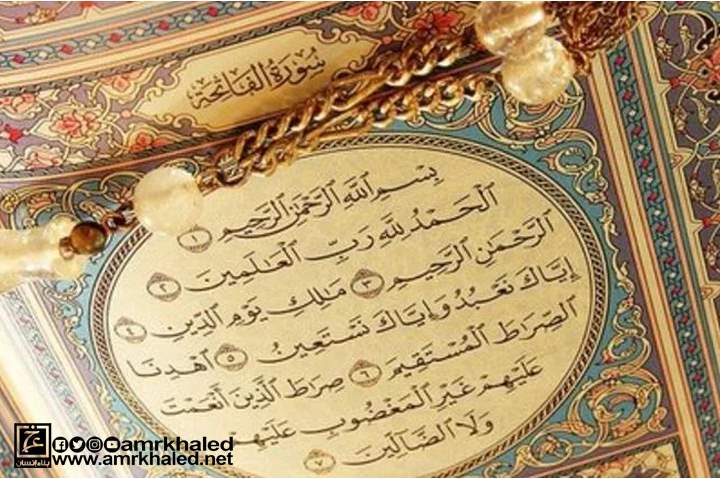 سُورَةُ الفَاتِحَةِ
بِسْمِ ٱللَّهِ ٱلرَّحْمَٰنِ ٱلرَّحِيمِ ١
ٱلْحَمْدُ لِلَّهِ رَبِّ ٱلْعَٰلَمِينَ ٢
ٱلرَّحْمَٰنِ ٱلرَّحِيمِ ٣ مَٰلِكِ يَوْمِ ٱلدِّينِ ٤
إِيَّاكَ نَعْبُدُ وَإِيَّاكَ نَسْتَعِينُ ٥ ٱهْدِنَا
ٱلصِّرَٰطَ ٱلْمُسْتَقِيمَ ٦ صِرَٰطَ ٱلَّذِينَ أَنْعَمْتَ
عَلَيْهِمْ غَيْرِ ٱلْمَغْضُوبِ عَلَيْهِمْ
وَلَا ٱلضَّآلِّينَ ٧
بناء إنسان
amrkhaled
www.amrkhaled.net